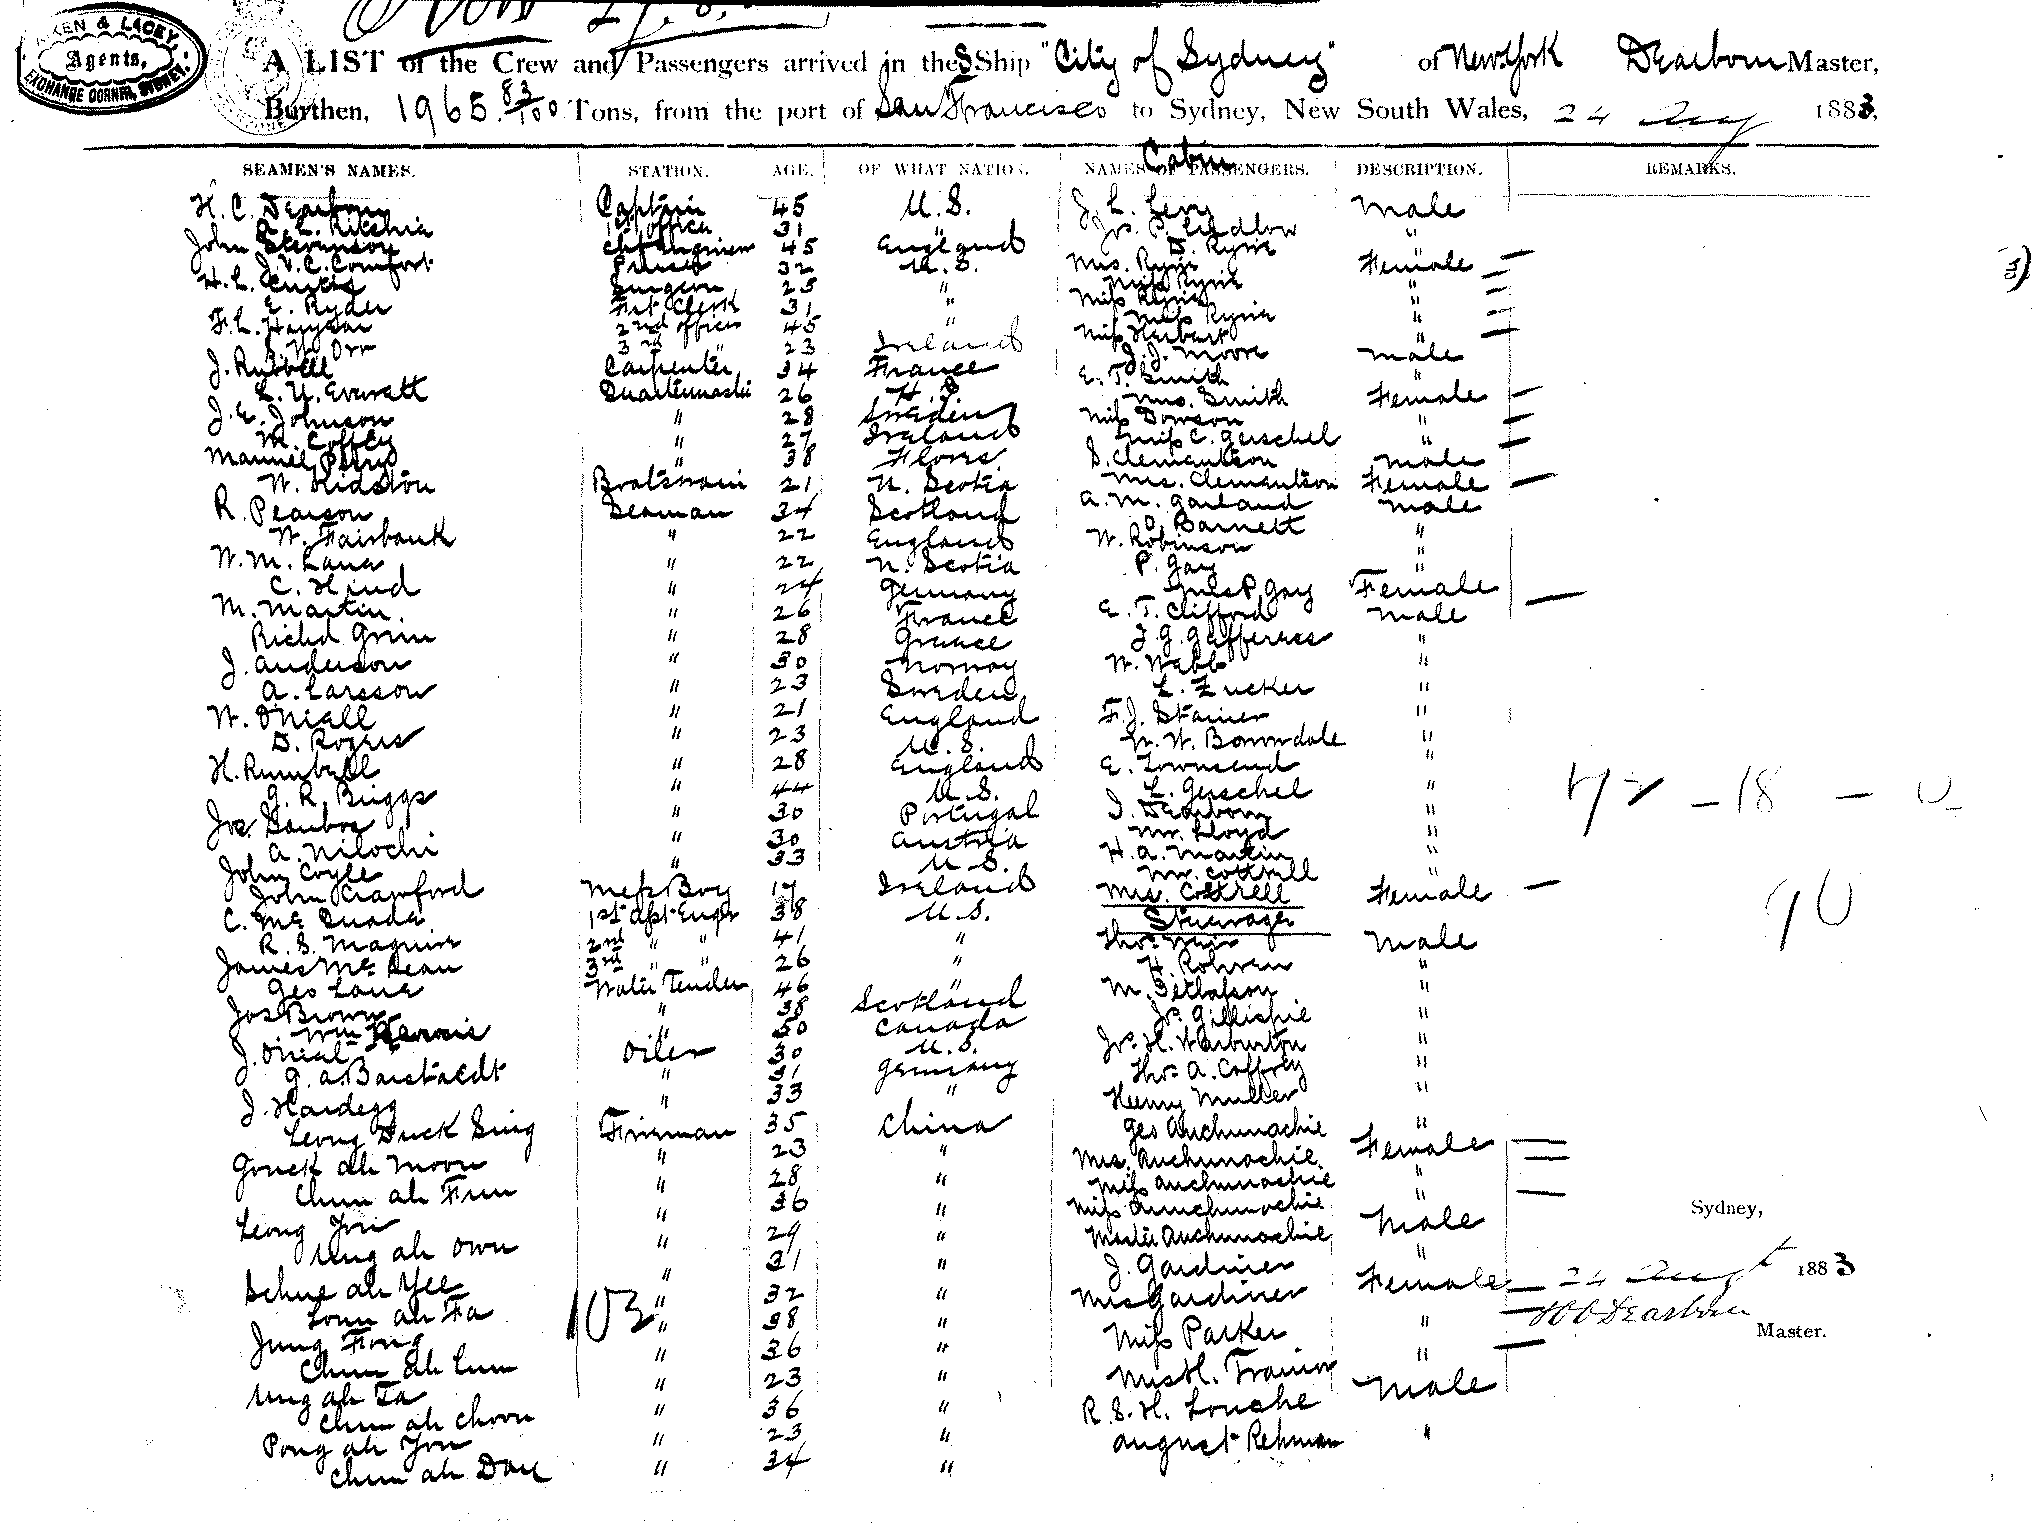 LACEY,
Agents,
EXCHANGE CORNER, SYDNEY.
A LIST of the Crew and Passengers arrived in the SShip "City of Sydney" of New York Dearborn Master,
Burthen, 1965 83/100 Tons, from the port of San Francisco to Sydney, New South Wales, 24 Aug 1883,
SEAMEN'S NAMES. STATION. AGE. OF WHAT NATION. NAMES OF PASSENGERS. DESCRIPTION. REMARKS.
Cabin
H. C. Dearborn Captain 45 U.S. J. L. Levy Male
31 " Ludlow "
John Stevenson 45 England D. Ryrie
J. V. C. Comfort Purser 32 U.S. Mrs. Ryrie Female
H. L. Curtis Surgeon 25 " Miss Ryrie "
E. Ryder Frt. Clerk 31 " Miss Ryrie "
F. L. 2nd Officer 45 " Miss Ryrie "
Orr 3rd " 23 Ireland Miss Herbert "
J. Russell Carpenter 34 France J. J. Moore Male
L. U. Everett Quartermaster 26 U.S. E. T. Smith
J. E. Johnson " 28 Sweden Mrs. Smith Female
M. Coffey " 27 Ireland Miss Dowson "
Manuel " 38 Flores Miss C. Gerschel "
W. Kidston Boatswain 21 N. Scotia S. Clementson Male
R. Pearson Seaman 34 Scotland Mrs. Clementson Female
W. Fairbank " 22 England A. M. Garland Male
W. M. Lana " 22 N. Scotia O. Barnett "
C. Hind " 24 Germany W. Robinson "
M. Martin. " 26 France P. Gay "
Richd Grim " 28 Greece Mrs P. Gay Female
J. Anderson " 30 Norway E. T. Clifford Male
A. Larsson " 23 Sweden J. G. "
W. O'Niall " 21 England W. Webb "
D. Rogers " 23 U.S. L. Zucker "
H. Rumball " 28 England F. J. Stainer "
G. R. Briggs " 44 U.S. W. W. "
Jos. " 30 Portugal E. Townsend "
A. Nilochi " 30 Austria L. Gerschel "
John Coyle " 33 U.S. J. Dearborn "
John Crawford Mess Boy 17 Ireland Mr. Lloyd "
C. McQuade 1st Asst Engr 38 U.S. H. A. Martin "
R. S. Maguire 2nd " " 41 " Mr. Cottrell "
James McBean 3rd " " 26 " Mrs. Cottrell Female
Geo Lane Water Tender 46 " Steerage
Jos Brown " 38 Scotland Thos Male
Wm " 50 Canada H. Rohren "
J. Oneal Oiler 30 U.S. M. "
G. A. Barstaedt " 31 Germany Jas. Gillispie "
J. Hardegg " 33 " Jas. H. Warburton "
Leong Duck Sing Fireman 35 China Thos A. Caffrey "
Gouck Ah Moon " 23 " Henry Muller "
Chun Ah Fun " 28 " Geo Auchunachie "
Leong You " 36 " Mrs. Auchunachie Female
Ung Ah Own " 29 " Miss Auchunachie "
Schue Ah Yee " 31 " Miss Auchunachie "
Loun Ah Fa " 32 " Master Auchunachie Male
Jung Fong " 38 " J. Gardiner "
Chun Ah Lum " 36 " Mrs Gardiner Female
Ung Ah Fa " 23 " Miss Parker "
Chun Ah Choon " 36 " Mrs H. Trainor "
Pong Ah You " 23 " R. S. H. Louche Male
Chun Ah Dow " 34 " August Rehman "
103
18
90
Sydney,
24 Augt 1883
H C Dearborn
Master.